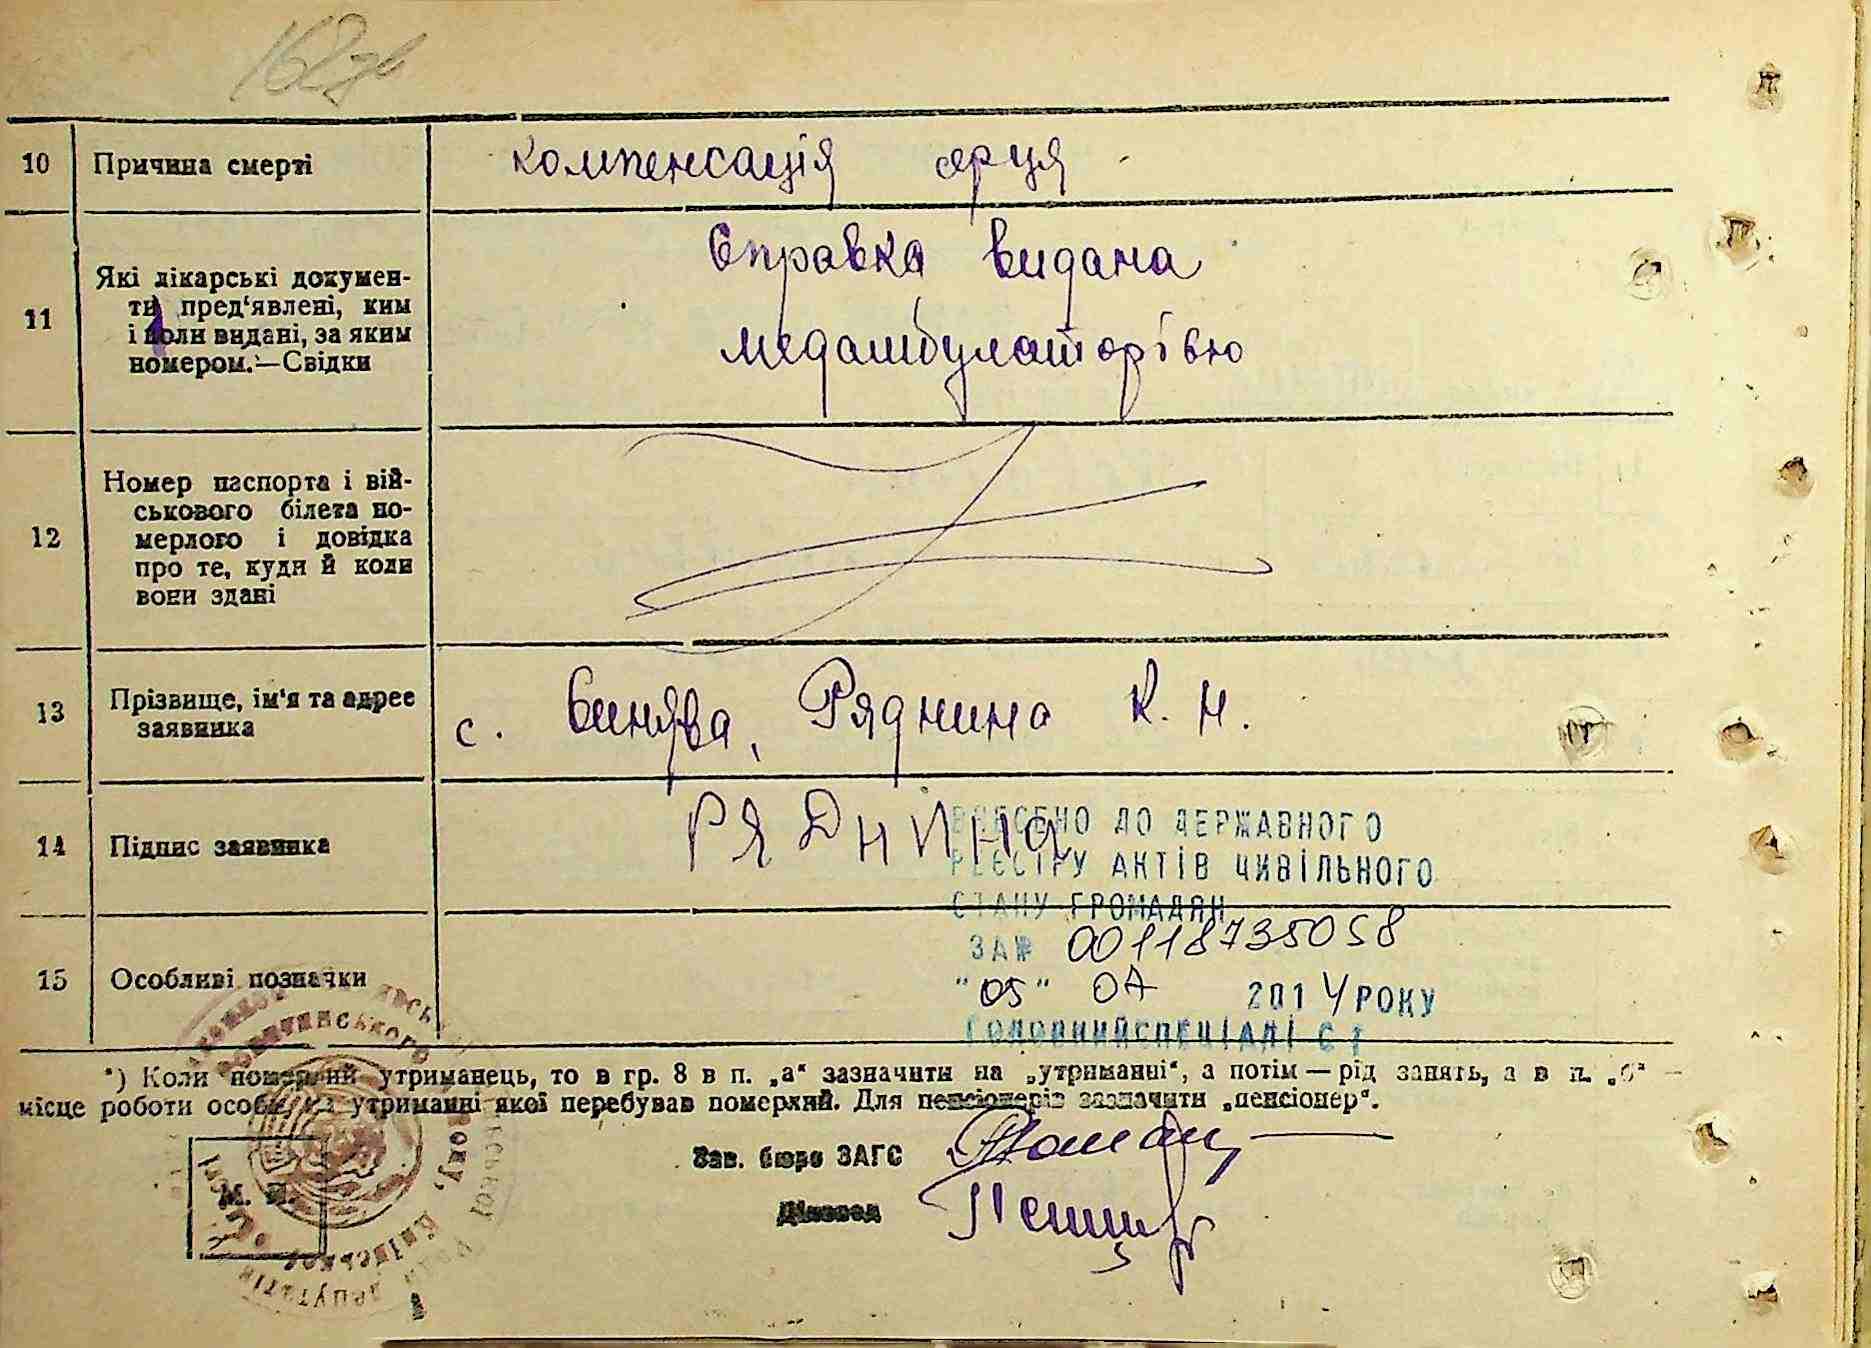 162зв
10 Причина смерті компенсація серця
11 Які лікарські документи пред'явлені, ким і коли видані, за яким номером.—Свідки
Справка видана
медамбулаторівю
12 Номер паспорта і вій-
ськового білета по-
мерлого і довідка
про те, куди й коли
вони здані
13 Прізвище, ім'я та адрес
заявника
с. Синява, Ряднина К. Н.
14 Підпис заявника РЯДНИНа
ВНЕСЕНО ДО ДЕРЖАВНОГО
РЕЄСТРУ АКТІВ ЦИВІЛЬНОГО
СТАНУ ГРОМАДЯН
ЗА № 00118735058
15 Особливі позначки
"05" 07 2014 РОКУ
ГОЛОВНИЙ СПЕЦІАЛІСТ
*) Коли померлий утриманець, то в гр. 8 в п. „а“ зазначити на „утриманні“, а потім — рід занять, а в п. „б“ —
місце роботи особи, на утриманні якої перебував померлий. Для пенсіонерів зазначити „пенсіонер“.
Зав. бюро ЗАГС
Діловод
М. П.